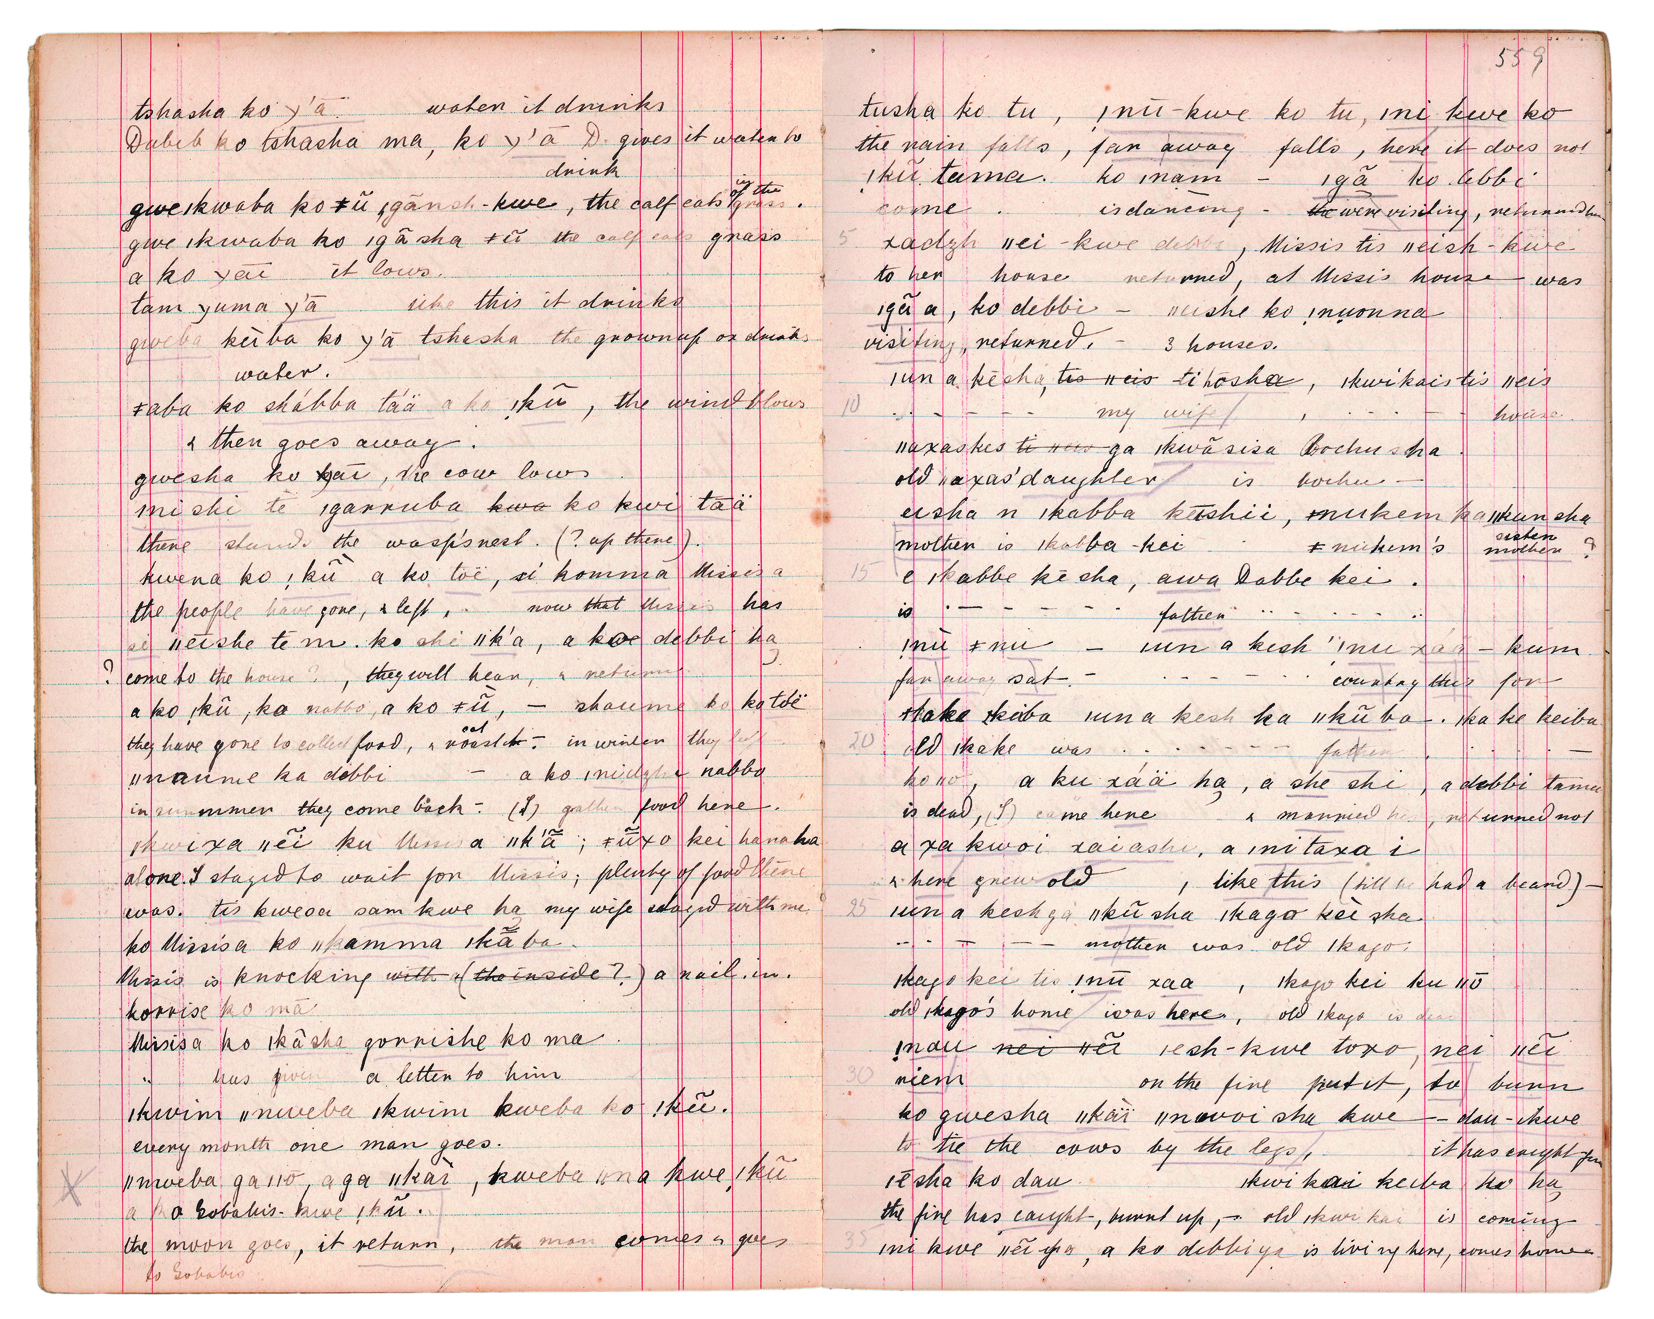 tshasha ko ɣ'ā water it drinks
Dabeb ko tshasha ma, ko ɣ'ā D. gives it water to
drink
gweıkwaba ko ǂũ ıgānsh-kwe, the calf eats of the grass.
gwe ıkwaba ko ıgãsha ǂũ the calf eats grass
a ko ɣāī it lows.
tam ɣuma ɣ'ā like this it drinks
gweba keiba ko ɣ'ā tshasha the grownup ox drinks
water.
ǂaba ko shábba tää a ko ǃkũ, the wind blows
& then goes away.
gwesha ko ɣāī, the cow lows
ıni shi tē ıgarruba kwa ko kwi tää
there stands the wasp'snest. (? up there).
kwena ko ǃkũ a ko töë, si komma Missis a
the people have gone, & left, now that Missis has
se ııeishe te m. ko shi ıık'a, a kwe debbi ha
? come to the house?, they will hear, & return
a ko ǃkũ, ka nabbo, a ko ǂũ, — shaume ko ka töë
they have gone to collect food, & eat roast it – in winter they left
ıınaume ka debbi — a ko ınidzha nabba
in summer they come back – (I) gather food here.
ıkwixa ııẽi ku Missis a ıık'ã; ǂũxo kei hanaha
alone I stayed to wait for Missis; plenty of food there
was. tis kwesa sam kwe ha my wife stayed with me.
ko Missisa ko ııkamma ıkãba.
Missis is knocking with (the inside?) a nail in.
korrise ko mā
Missisa ko ıkāsha gorrishe ko ma.
" has given a letter to him
ıkwim ıınweba ıkwim kweba ko ǃkũ.
every month one man goes.
ıınweba ga ııō, a ga ııkäï, kweba ıına kwe ǃkũ
a ko Gobabis-kwe ǃkũ.
the moon goes, it return, the man comes & goes
to Gobabis
559
tusha ko tu, ǃnū-kwe ko tu, ıni kwe ko
the rain falls, far away falls, here it does not
ǃkũ tama. ko ınam – ıgã ko debbi
come. is dancing – the were visiting, returned
5 xadzh ııei-kwe debbi, Missis tis ııeish-kwe
to her house returned, at Missis house was
ıgã a, ko debbi – ııushe ko ǃnuonna
visiting, returned. – 3 houses.
ıun a kēsha tis ııeis ti hosha, ıkwikais tis ııeis
10 my wife, house.
ııaxaskes ti ga ıkwãsisa Bochusha.
old ııaxas' daughter is bochu –
eisha n ıkabba keishii, ǂnukem ka ııkunsha
mother is ıkabba-kei ǂnukem's sister mother ?
15 e ıkabbe kēsha, awa Dabbe kei.
is father
ǃnū ǂnū – ıun a kesh ǃnu xáä – kum
far away sat. – country this for
ıkake keiba ıun a kesh ka ııkũba. ıkake keiba
20 old ıkake was father.
ko ııō, a ku xáä ha, a she shi, a debbi tama
is dead, (I) came here & married her, returned not
a xa kwoi xaiashe, a ınitaxa i
& here grew old, like this (till he had a beard) –
25 ıun a kesh ga ııkũsha ıkago kēi sha
mother was old ıkago.
ıkago kei tis ǃnū xaa, ıkago kei ku ııō
old ıkago's home was here, old ıkago is dead
ǃnau nei ııẽi ıesh-kwe toxo, nei ııẽi
30 niem on the fire put it, to burn
ko gwesha ııkäï ıınoroi sha kwe – dau-ıkwe
to tie the cows by the legs, it has caught fire
ıēsha ko dau ıkwikai keiba ko ha
the fire has caught, burnt up, – old ıkwi kai is coming
35 ıni kwe ııẽi, a ko debbi ya is living here, comes home